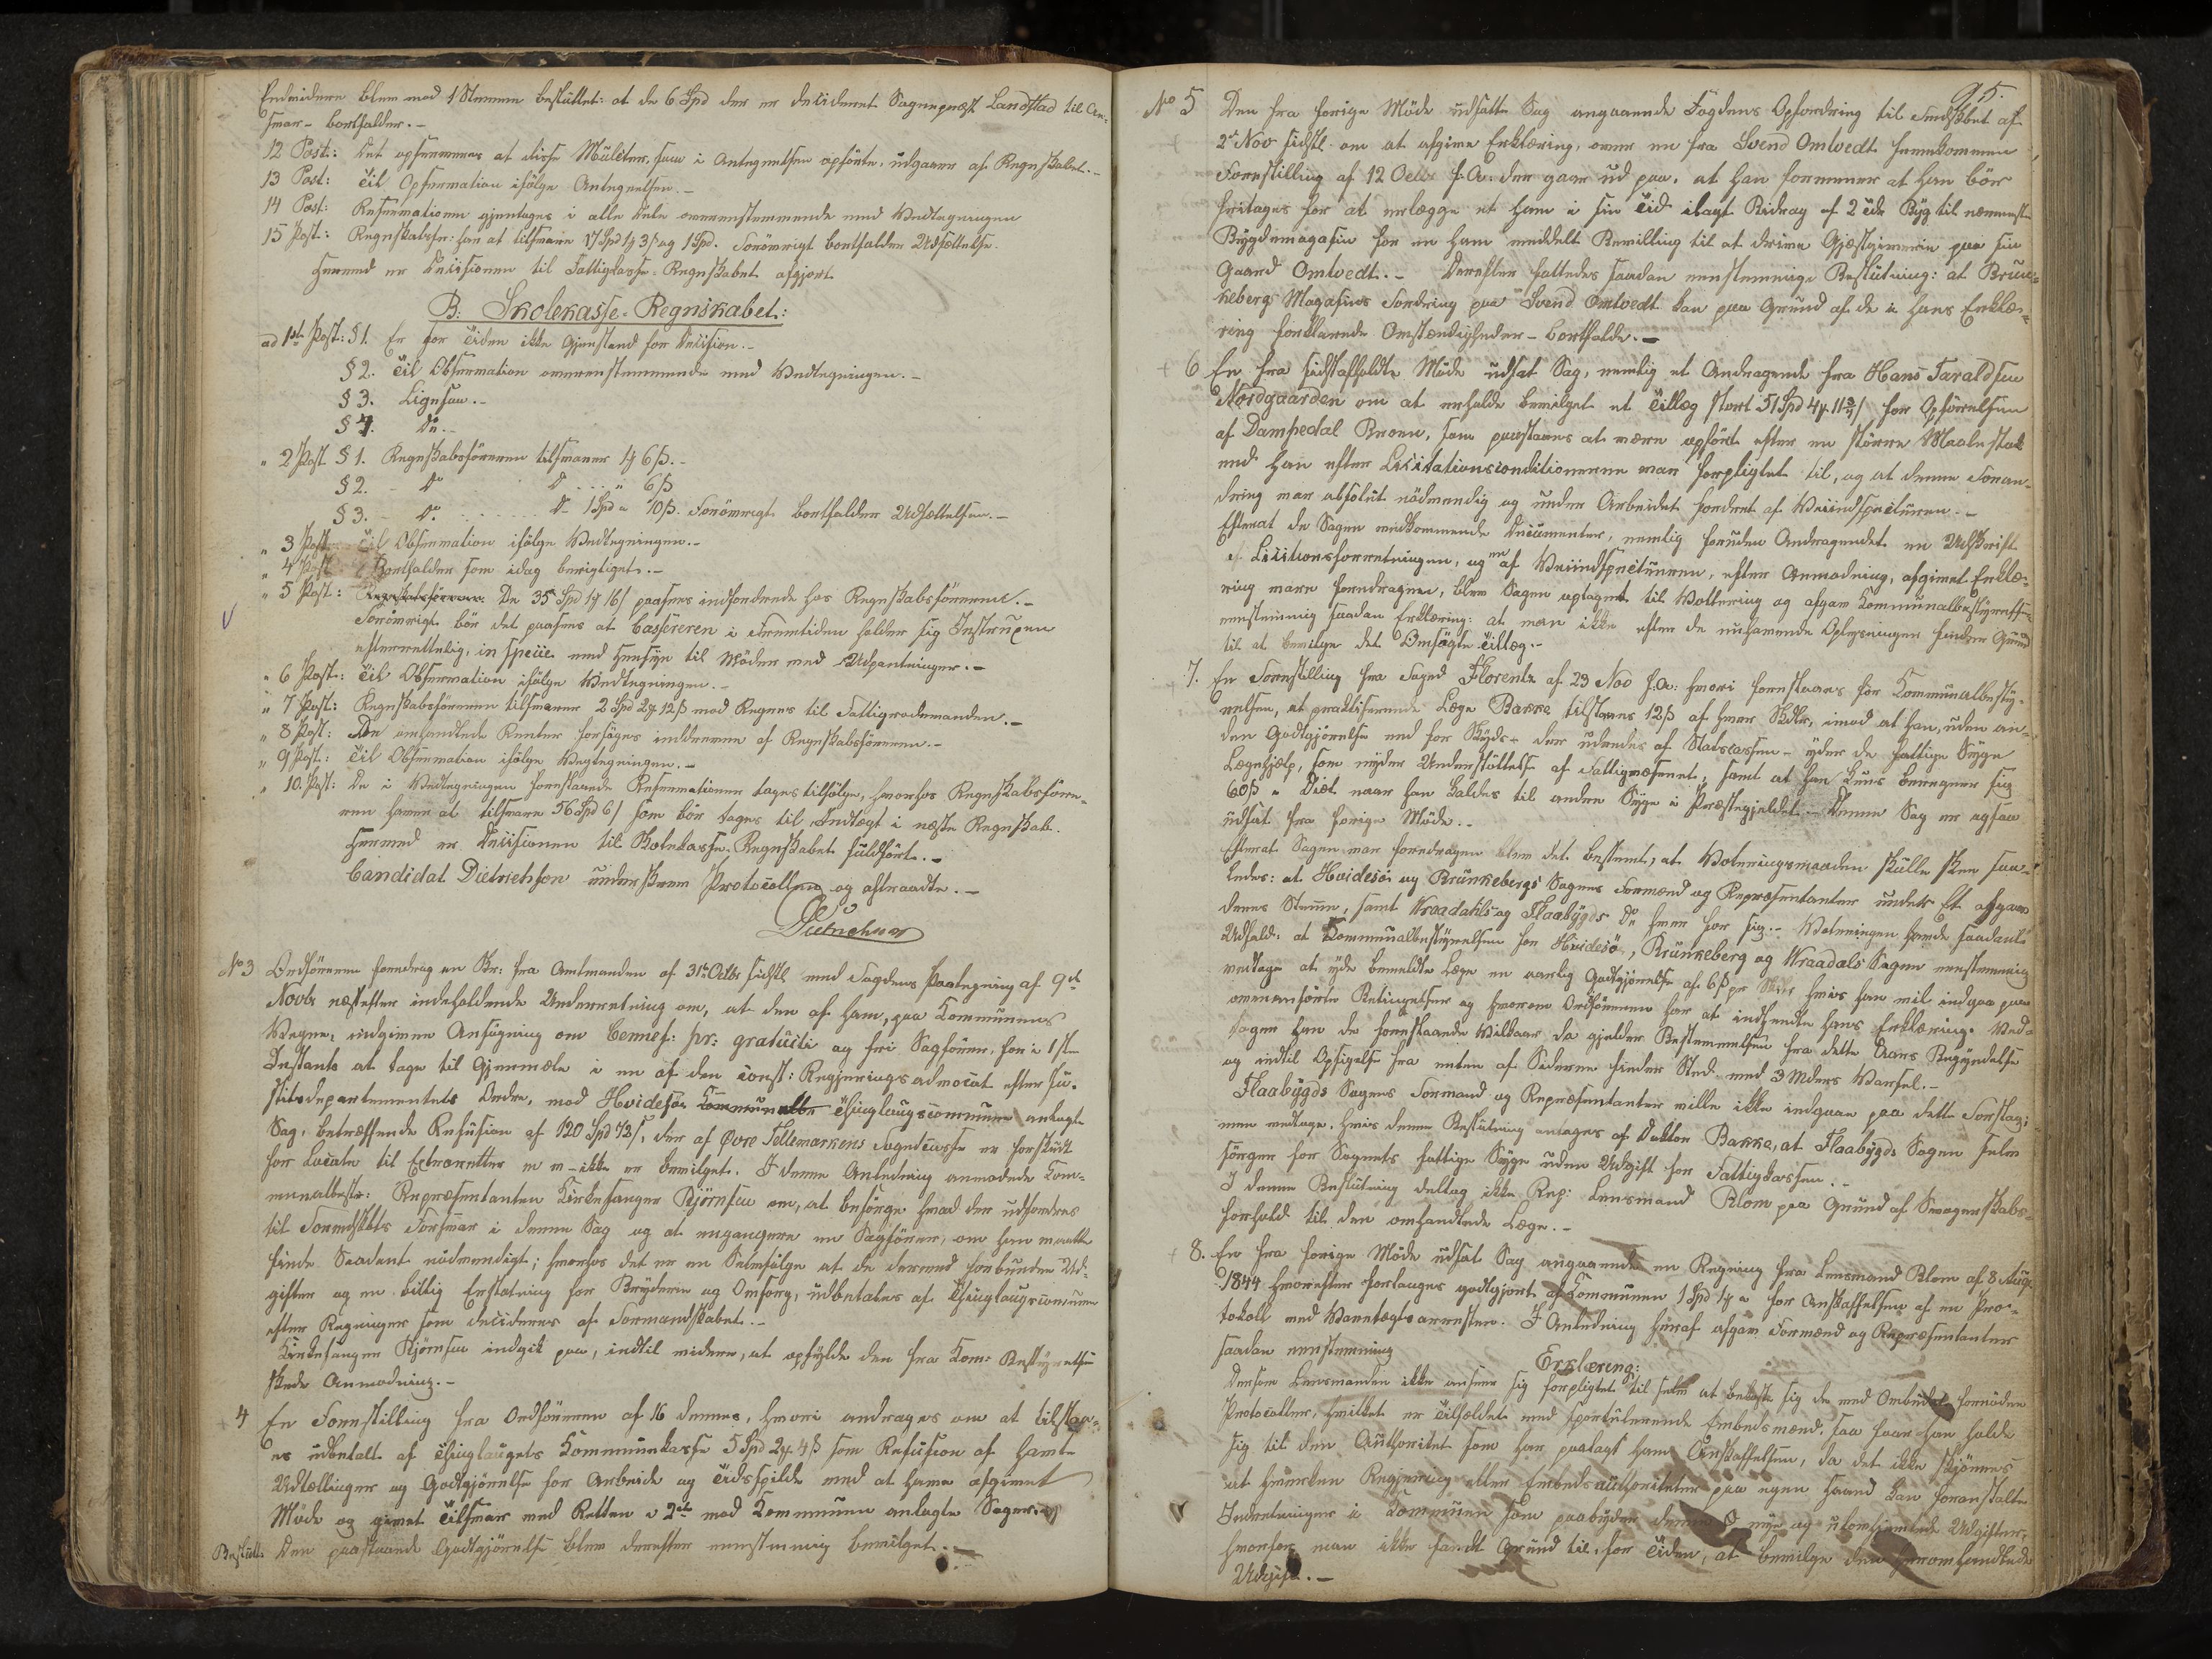 Endvidere blev med 1 Stemme besluttet: at de 6 Spd der er decideret Sognepræst Landstad til An-
svar - bortfalder. -
12 Post: Det observeres at disse Mulcter, som i Antegnelsen opførte, udgaaer af Regnskabet. -
13 Post: Til Observation ifølge Antegnelsen. -
14 Post: Reservationen gjentages i alle Dele overensstemmende med Vedtegningen
15 Post: Regnskabsfør: har at tilsvare 17 Spd 1 ꝟ 3 ß og 1 Spd. Forøvrigt bortfalder Udsættelse.
Hermed er Decisionen til Fattigkasse-Regnskabet afgjort.
B: Skolekasse-Regnskabet:
ad 1ste Post: § 1. Er for Tiden ikke Gjenstand for Decision. -
§ 2. Til Observation overensstemmende med Vedtegningen. -
§ 3. Ligesaa. -
§ 4. Do. -
" 2 Post § 1. Regnskabsføreren tilsvarer 1 ꝟ 6 ß. -
§ 2. - Do D .... " 6 ß
§ 3. - Do. D - 1 Spd " 10 ß. Forøvrigt bortfalder Udsættelsen. -
" 3 Post Til Observation ifølge Vedtegningen. -
" 4 Post Bortfalder som idag berigtiget. -
" 5 Post: Regnskabsføreren De 35 Spd 1 ꝟ 16 ß paasees indfordrede hos Regnskabsførerne. -
Forøvrigt bør det paasees at Cassereren i Fremtiden holder sig Instruxen
efterrettelig, in specie med Hensyn til Møder med Udpantninger. -
" 6 Post: Til Observation ifølge Vedtegningen. -
" 7 Post: Regnskabsføreren tilsvarer 2 Spd 2 ꝟ 12 ß mod Regres til Fattigrodemanden. -
" 8 Post: De omhandlede Renter forsøges inddrevne af Regnskabsføreren. -
" 9 Post: Til Observation ifølge Vegtegningen. -
" 10. Post: De i Vedtegningen foreslaaede Reservationer tages tilfølge, hvorhos Regnskabsføre-
ren haver at tilsvare 56 Spd 6 ß som bør tages til Indtægt i næste Regnskab.
Hermed er Decisionen til Skolekasse-Regnskabet fuldført. -
Candidat Dietrichson underskrev Protocollen og aftraadte. -
Dietrichson
No 3 Ordføreren foredrog en Skr: fra Amtmanden af 31te Octbr sidstl med Fogdens Paategning af 9de
Novbr næstefter indeholdende Underretning om, at den af ham, paa Kommunens
Vegne, indgivne Ansøgning om Benef: pr: gratuiti og fri Sagfører, for i 1ste
Instants at tage til Gjenmæle i en af den const: Regjeringsadvocat efter Ju-
stitsdepartementets Ordre, mod Hvidesøe Kommunalbe Thinglaugscommune anlagte
Sag, betræffende Refusion af 120 Spd 72 ß, der af Øvre Tellemarkens Fogedcasse er forskudt
for Locale til Extraretter m m - ikke er bevilget. I denne Anledning anmodede Kom-
munalbest: Repræsentanten Kirkesanger Bjørnsen om, at besørge hvad der udfordres
til Formdskbts Forsvar i denne Sag og at engangere en Sagfører, om han maatte
finde Saadant nødvendigt; hvorhos det er en Selvfølge at de dermed forbundne Ud-
gifter og en billig Erstatning for Bryderie og Omsorg, udbetales af Thinglaugscommunen
efter Regninger som decideres af Formandskabet. -
Kirkesanger Bjørnsen indgik paa, indtil videre, at opfylde den fra Kom: Bestyrelsen
skede Anmodning. -
4 En Forestilling fra Ordføreren af 16 dennes, hvori andrages om at tilstaa-
es udbetalt af Thinglaugets Kommunekasse 5 Spd 2 ꝟ 4 ß som Refusion af havte
Udtællinger og Godtgjørelse for Arbeide og Tidsspilde med at have afgivet
Møde og givet Tilsvar ved Retten i 2de mod Kommunen anlagte Sager.
Beslutt: Den paastaaede Godtgjørelse blev derefter eenstemmig bevilget. -
95.
No 5 Den fra forrige Møde udsatte Sag angaaende Fogdens Opfordring til Fmdskbet af
2de Nov sidstl. om at afgive Erklæring, over en fra Svend Omtvedt fremkommen
Forestilling af 12 Octbr f. A. der gaar ud paa, at han formener at han bør
fritages for at erlægge et ham i sin Tid ilagt Bidrag af 2 Tdr Byg til nærmeste
Bygdemagasin for en ham meddelt Bevilling til at drive Gjæstgiverie paa sin
Gaard Omtvedt. - Derefter fattedes saadan eenstemmige Beslutning: at Brun-
kebergs Magasins Fordring paa Svend Omtvedt kan paa Grund af de i hans Erklæ-
ring forklarede Omstændigheder - bortfalde. -
6 En fra sidstafholdte Møde udsat Sag, nemlig et Andragende fra Hans Taraldsen
Nordgaarden om at erholde bevilget et Tillæg stort 51 Spd 4 ꝟ 11 ß for Opførelsen
af Dampedal Broen, som paastaaes at være opført efter en større Maalestok
end han efter Licitationsconditionerne var forpligtet til, og at denne Foran-
dring var absolut nødvendig og under Arbeidet fordret af Veiinspecteuren. -
Efterat de Sagen vedkommende Documenter, nemlig foruden Andragendet en Udskrift
af Licitionsforretningen, og en af Veiinspecteuren, efter Anmodning, afgivet Erklæ-
ring vare foredragne, blev Sagen optaget til Vottering og afgav Kommunalbestyrelsen
eenstemmig saadan Erklæring: at man ikke efter de nuhavende Oplysninger finder Grund
til at bevilge det Omsøgte Tillæg. -
7. En Forestilling fra Foged Florentz af 23 Nov f. A. hvori foreslaaes for Kommunalbesty-
relsen, at praktiserende Læge Bakke tilstaaes 12 ß af hver Skdlr, imod at han, uden an-
den Godtgjørelse end for Skyds - der udredes af Statscassen - yder de fattige Syge
Lægehjelp, som nyder Understøttelse af Fattigvæsenet, samt at han kuns beregner sig
60 ß i Diæt naar han kaldes til andre Syge i Præstegjeldet. - Denne Sag er ogsaa
udsat fra forrige Møde. -
Efterat Sagen var foredragen blev det bestemt, at Voteringsmaaden skulle skee saa-
ledes: at Hvidesøe og Brunkebergs Sognes Formænd og Repræsentanter under Et afgav
deres Stemme, samt Vraadahls og Flaabygds Do hver for sig. - Voteringen havde saadant
Udfald: at Kommunalbestyrelsen for Hvidesø, Brunkeberg og Vraadals Sogne eenstemmig
vedtage at yde bemeldte Læge en aarlig Godtgjørelse af 6 ß pr Skdlr hvis han vil indgaa paa
ovenanførte Betingelser og hvorom Ordføreren har at indhente hans Erklæring. Ved-
tager han de foreslaaede Vilkaar da gjelder Bestemmelsen fra dette Aars Begyndelse
og indtil Opsigelse fra enten af Siderne finder Sted med 3 Mders Varsel. -
Flaabygds Sognes Formand og Repræsentanter ville ikke indgaae paa dette Forslag;
men vedtage, hvis denne Beslutning antages af Doktor Bakke, at Flaabygds Sogn selv
sørger for Sognets fattige Syge uden Udgift for Fattigkassen. -
I denne Beslutning deltog ikke Rep: Lensmand Blom paa Grund af Svogerskabs-
forhold til den omhandlede Læge. -
8. En fra forrige Møde udsat Sag angaaende en Regning fra Lensmand Blom af 8 Aug.
1844 hvorefter forlanges godtgjort af Kommunen 1 Spd 1 ꝟ " for Anskaffelsen af en Pro-
tokoll med Varetægtsarresten. I Anledning heraf afgav Formænd og Repræsentanter
saadan eenstemmig
Erklæring:
Dersom Lensmanden ikke anseer sig forpligtet til selv at bekoste sig de med Ombudet fornødne
Protocoller, hvilket er Tilfældet med sportulerende Embedsmænd, saa faar han holde
sig til den Authoritet som har paalagt ham Anskaffelsen, da det ikke skjønnes
at hverken Regjering eller Embedsauthoriteter paa egen Haand kan foranstalte
Indretninger i Kommunen som paabyder denne nye og ulovhjemlede Udgifter,
hvorfor man ikke fandt Grund til, for Tiden, at bevilge den heromhandlede
Udgift. -